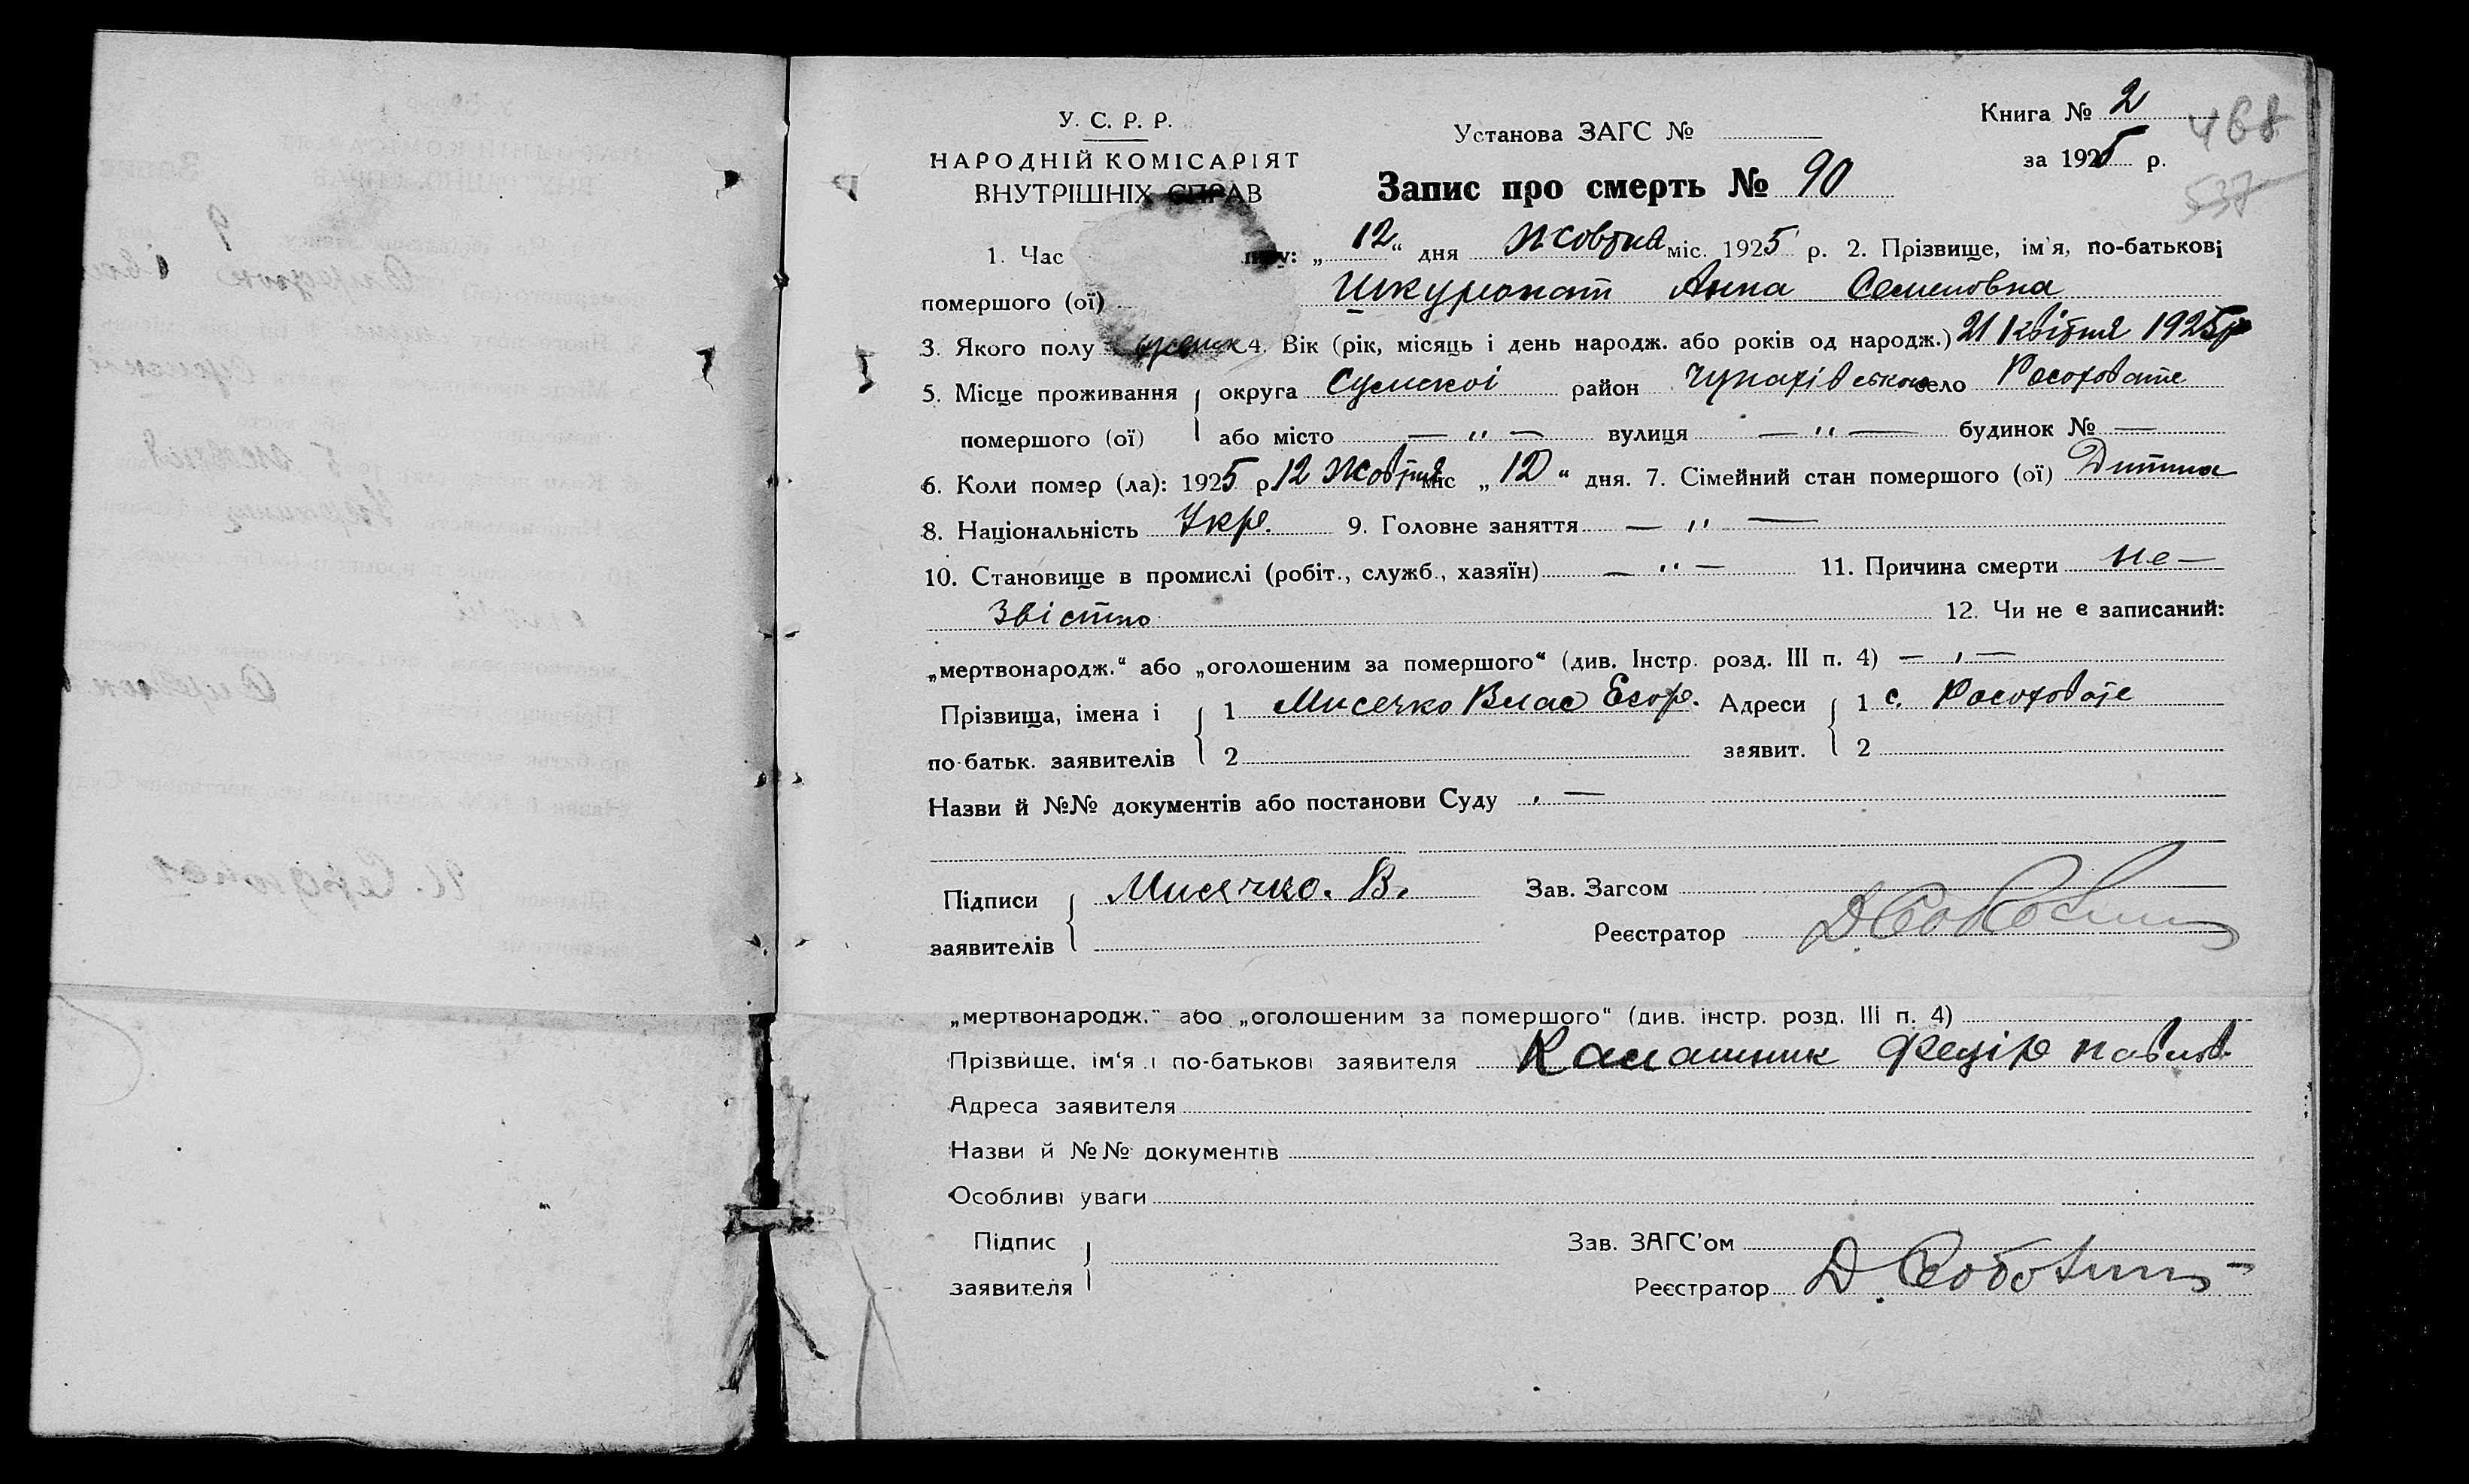 У. С. Р. Р.
НАРОДНІЙ КОМІСАРІЯТ
ВНУТРІШНІХ СПРАВ
Установа ЗАГС №
Книга № 2
468
за 1925 р.
537
Запис про смерть № 90
1. Час „12“ дня Жовтня міс. 1925 р. 2. Прізвище, ім'я, по-батькові
помершого (ої) Анна Семеновна
3. Якого полу 4. Вік (рік, місяць і день народж. або років од народж.) 21 квітня 1925р
5. Місце проживання округа Сумскої район село Росоховате
помершого (ої) або місто — " — вулиця — " — будинок № —
6. Коли помер (ла): 1925 р 12 Жовтня міс „12“ дня. 7. Сімейний стан помершого (ої) Дитина
8. Національність Укр. 9. Головне заняття — " —
10. Становище в промислі (робіт., служб., хазяїн) — " — 11. Причина смерти не-
звістно 12. Чи не є записаний:
„мертвонародж.“ або „оголошеним за помершого“ (див. Інстр. розд. III п. 4) — , —
Прізвища, імена і 1 Мисечко Влас Егор. Адреси 1 с. Росоховате
по-батьк. заявителів 2 заявит. 2
Назви й №№ документів або постанови Суду , —
Підписи Мисечко. В. Зав. Загсом
заявителів Реєстратор
„мертвонародж.“ або „оголошеним за помершого“ (див. інстр. розд. III п. 4)
Прізвище, ім'я і по-батькові заявителя Калашник Федір Павлов.
Адреса заявителя
Назви й №№ документів
Особливі уваги
Підпис Зав. ЗАГС'ом
заявителя Реєстратор